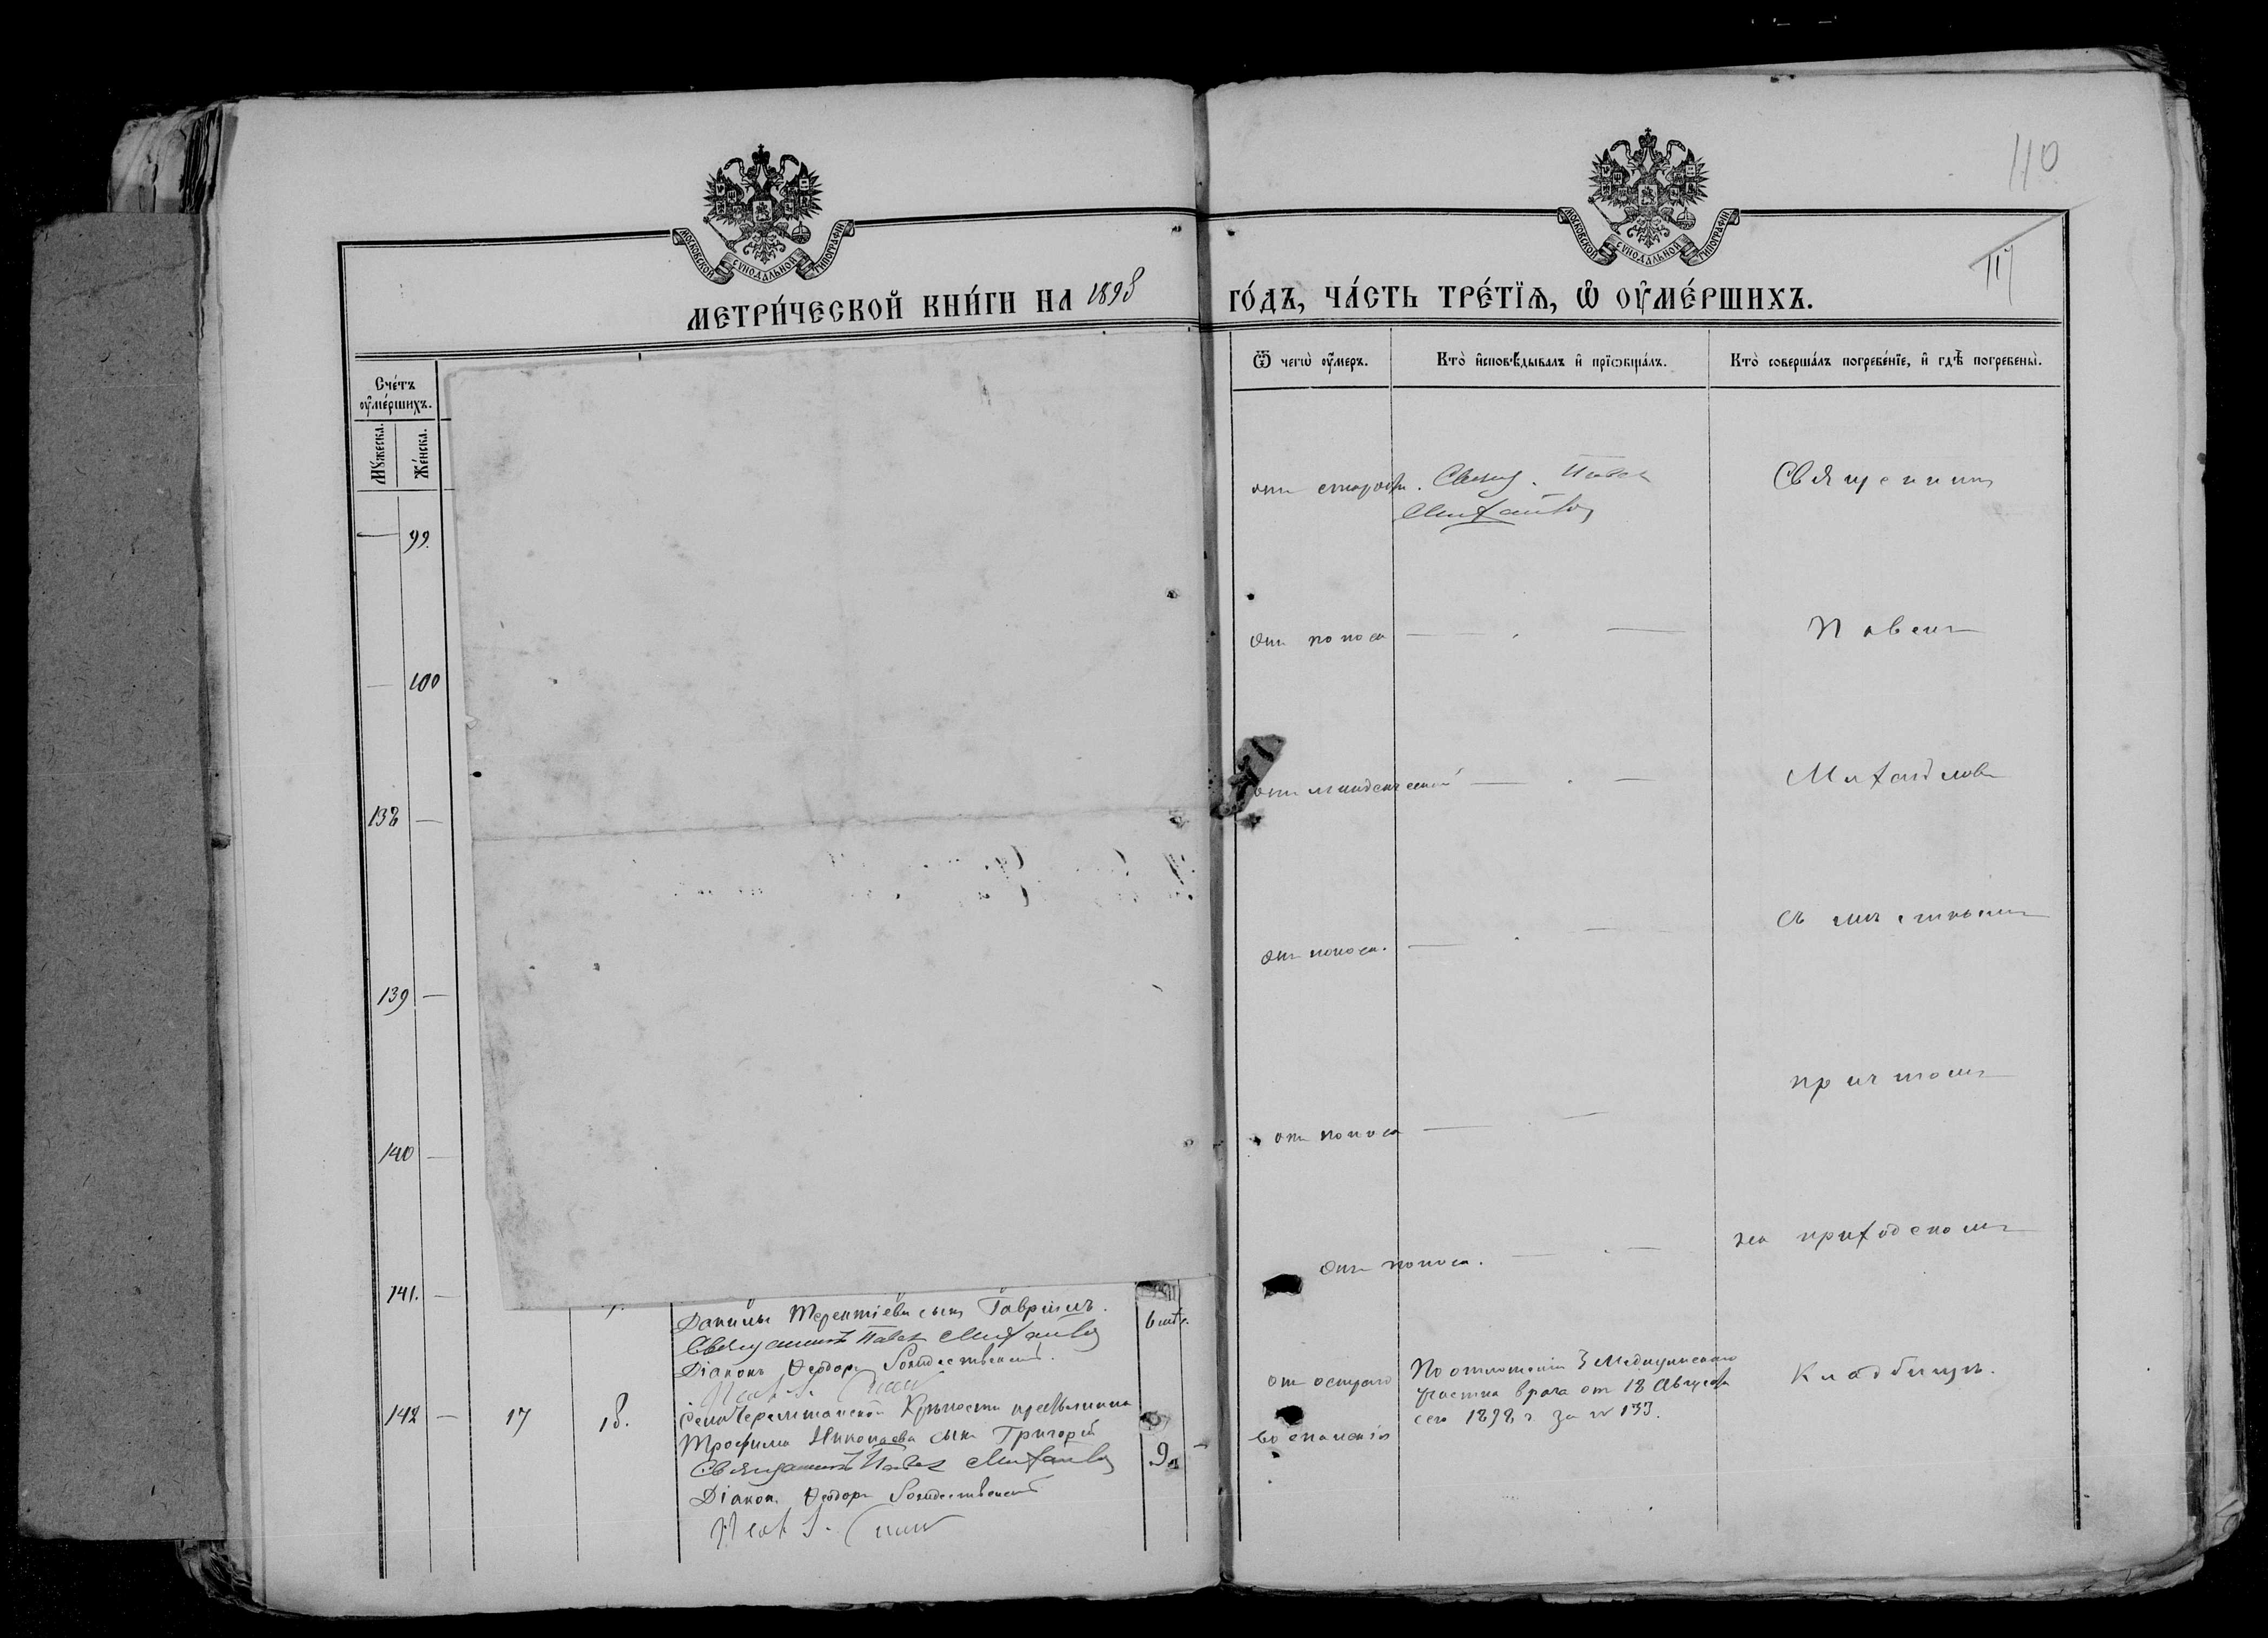 110
117
МОСКОВСКОЙ СѴНОДАЛЬНОЙ ТИПОГРАФІИ
МОСКОВСКОЙ СѴНОДАЛЬНОЙ ТИПОГРАФІИ
МЕТРИ́ЧЕСКОЙ КНИ́ГИ НА 1898
ГО́ДЪ, ЧА́СТЬ ТРЕ́ТІѦ, Ѡ҆ ОУ҆МЕ́РШИХЪ.
Сче́тъ
оу҆ме́ршихъ.
Мꙋ́жеска.
Же́нска.
Ѿ чегѡ̀ оу҆́меръ.
Кто̀ и҆сповѣ́дывалъ и҆ прїѡбща́лъ.
Кто̀ соверша́лъ погребе́нїе, и҆ гдѣ̀ погребены̀.
— 99.
отъ старости. Свящ. Павел
Михайлов
Священникъ
— 100
отъ поноса — . —
Павелъ
138 —
отъ младенческой — . —
Михайловъ
139 —
отъ поноса. — . —
съ мѣстнымъ
140 —
отъ поноса — —
причтомъ
141. —
Данилы Терентіева сынъ Гавріилъ.
Священникъ Павел Михайлов
Діаконъ Ѳеодоръ Рождественскій.
отъ поноса. — . —
на приходскомъ
142 — 17 18.
Села Черемшанской Крѣпости крестьянина
Трофима Николаева сынъ Григорій
Священникъ Павел Михайлов
Діакон. Ѳеодоръ Рождественскій
9
от остраго
воспаленія
По отношенію 3 Медицинскаго
участка врача от 18 Августа
сего 1898 г. за № 133.
Кладбищѣ.